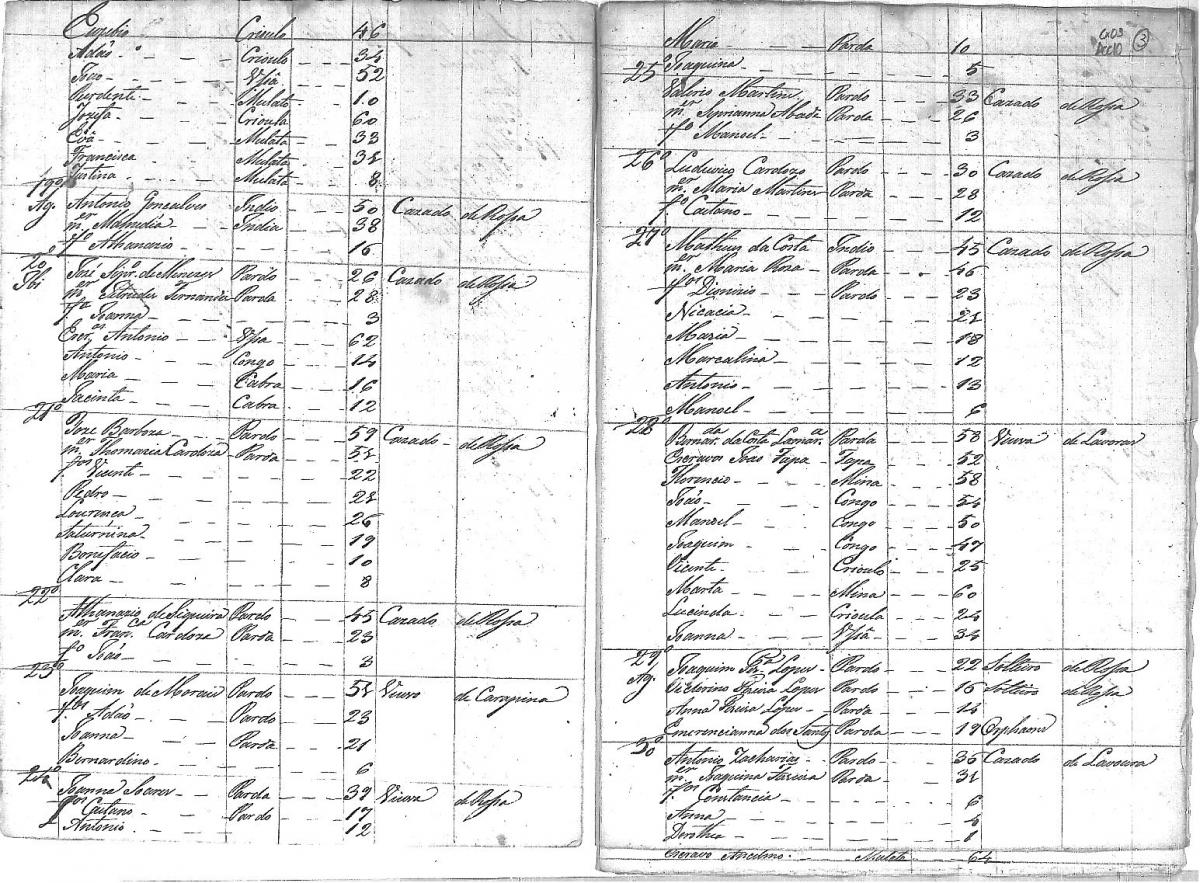 Euzebio Crioulo 46
Adaõ Crioulo 34
Joaõ Ussá 52
Prudente Mulato 10
Jozefa Crioula 60
Eva Mulata 33
Francisca Mulata 34
Justina Mulata 8
19º
Ag. Antonio Gonçalves Indio 50 Cazado de Rossa
m.er India 38
f.º Athanazio 16
20
José de Menezes Pardo 26 Cazado de Rossa
m.er Fernanda Parda 28
f.ª Joanna 3
Escr.os Antonio Ussa 62
Antonio Congo 14
Maria Cabra 16
Jacinta Cabra 12
21º
Joze Barboza Pardo 59 Cazado de Rossa
m.er Thomazia Cardoza Parda 51
f.os Vicente 22
Pedro 21
Lourença 26
Saturnina 19
Bonifacio 10
Clara 8
22º
Athanazio de Siqueira Pardo 45 Cazado de Rossa
m.er Fran.ca Cardoza Parda 23
f.º Joaõ 3
23º
Joaquim de Moraes Pardo 51 Viuvo de Carapina
f.os Adaõ Pardo 23
Joanna Parda 21
Bernardino 6
24º
Joanna Soares Parda 39 Viuva de Rossa
f.os Caetano Pardo 17
Antonio 12
3
Maria Parda 10
Joaquina 5
25º
Valerio Martins Pardo 33 Cazado de Rossa
m.er Siprianna Parda 26
f.º Manoel 3
26º
Ludovico Cardozo Pardo 30 Cazado de Rossa
m.er Maria Martins Parda 28
f.º Caetano 12
27º
Matheus da Costa Indio 45 Cazado de Rossa
m.er Maria Roza Parda 46
f.os Dionizio Pardo 23
Nicacia 21
Maria 18
Marcalina 12
Antonio 13
Manoel 6
28º
Bernar.da da Costa Parda 58 Viuva de Lavoras
Escravos Joaõ Tapa Tapa 52
Florencio Mina 58
Joaõ Congo 54
Manoel Congo 50
Joaquim Congo 47
Vicente Crioulo 25
Marta Mina 60
Lucinda Crioula 24
Joanna Ussá 34
29º
Ag. Joaquim Lopes Pardo 22 Solteiro de Rossa
Victorino Lopes Pardo 16 Solteiro de Rossa
Anna Lopes Parda 14
Emerencianna dos Santos Parda 19 Orphama
30º
Antonio Zacharias Pardo 36 Cazado de Lavoura
m.er Joaquina Parda 31
f.os Constancia 6
Anna 4
Dorothea 1
Escravo Anselmo Mulato 64